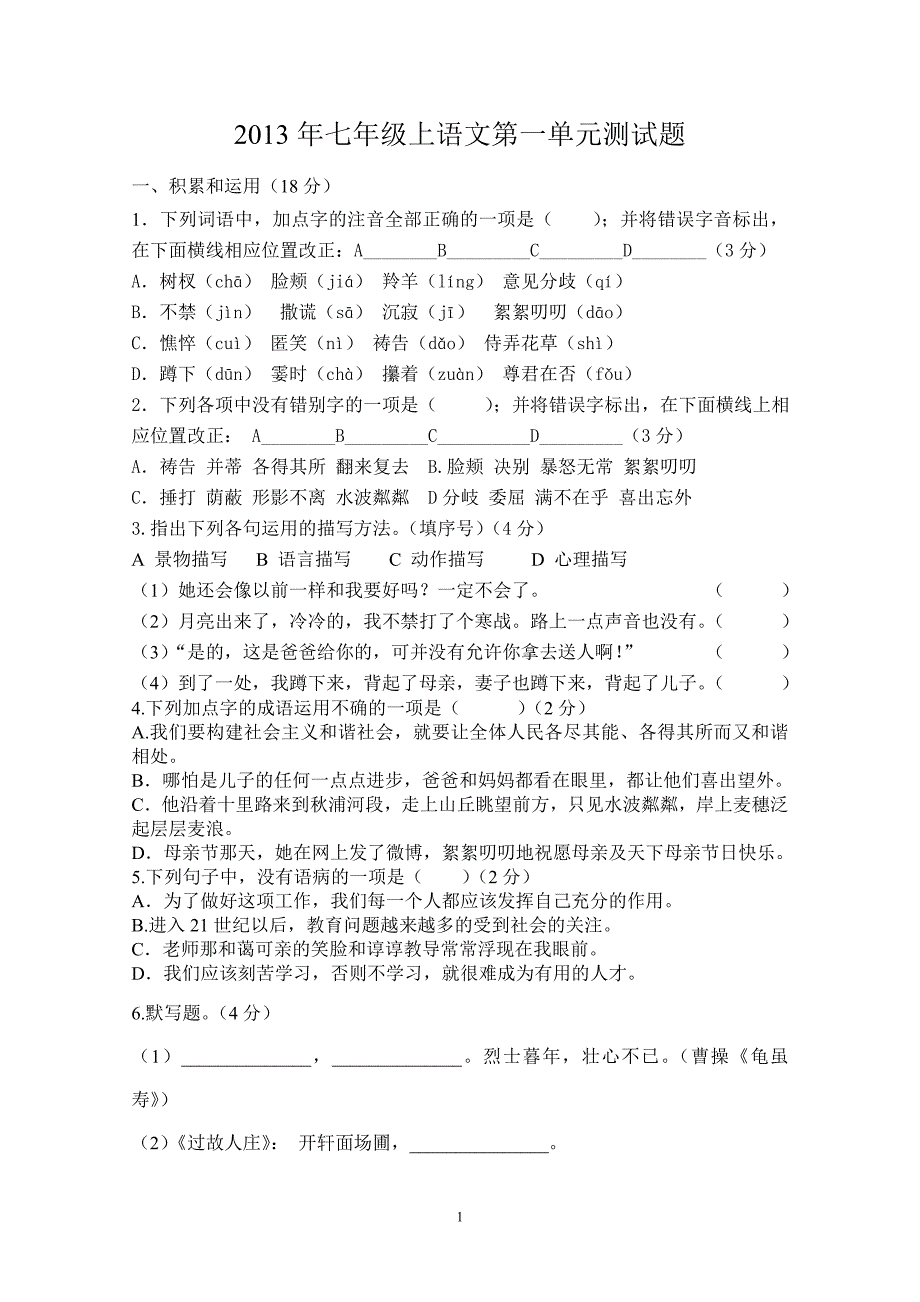 2013 年七年级上语文第一单元测试题
一、积累和运用（18 分）
1．下列词语中，加点字的注音全部正确的一项是（　　）；并将错误字音标出，
在下面横线相应位置改正：A________B_________C_________D________（3 分）
A．树杈（chā） 脸颊（jiá） 羚羊（líng） 意见分歧（qí）
B．不禁（jìn） 撒谎（sā） 沉寂（jī） 絮絮叨叨（dāo）
C．憔悴（cuì） 匿笑（nì） 祷告（dǎo） 侍弄花草（shì）
D．蹲下（dūn） 霎时（chà） 攥着（zuàn） 尊君在否（fǒu）
2．下列各项中没有错别字的一项是（　　）；并将错误字标出，在下面横线上相
应位置改正： A________B_________C__________D_________（3 分）
A．祷告 并蒂 各得其所 翻来复去 B.脸颊 决别 暴怒无常 絮絮叨叨
C．捶打 荫蔽 形影不离 水波粼粼 D 分岐 委屈 满不在乎 喜出忘外
3.指出下列各句运用的描写方法。（填序号）（4 分）
A 景物描写 B 语言描写 C 动作描写 D 心理描写
（1）她还会像以前一样和我要好吗？一定不会了。（　　）
（2）月亮出来了，冷冷的，我不禁打了个寒战。路上一点声音也没有。（　　）
（3）“是的，这是爸爸给你的，可并没有允许你拿去送人啊！”（　　）
（4）到了一处，我蹲下来，背起了母亲，妻子也蹲下来，背起了儿子。（　　）
4.下列加点字的成语运用不确的一项是（　　）（2 分）
A.我们要构建社会主义和谐社会，就要让全体人民各尽其能、各得其所而又和谐
相处。
B．哪怕是儿子的任何一点点进步，爸爸和妈妈都看在眼里，都让他们喜出望外。
C．他沿着十里路来到秋浦河段，走上山丘眺望前方，只见水波粼粼，岸上麦穗泛
起层层麦浪。
D．母亲节那天，她在网上发了微博，絮絮叨叨地祝愿母亲及天下母亲节日快乐。
5.下列句子中，没有语病的一项是（　　）（2 分）
A．为了做好这项工作，我们每一个人都应该发挥自己充分的作用。
B.进入 21 世纪以后，教育问题越来越多的受到社会的关注。
C．老师那和蔼可亲的笑脸和谆谆教导常常浮现在我眼前。
D．我们应该刻苦学习，否则不学习，就很难成为有用的人才。
6.默写题。（4 分）
（1）______________，______________。烈士暮年，壮心不已。（曹操《龟虽
寿》）
（2）《过故人庄》： 开轩面场圃，_______________。
1